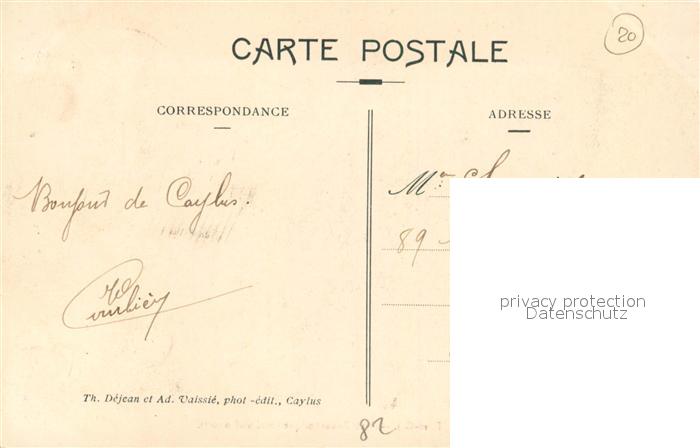 20
CARTE POSTALE
CORRESPONDANCE
ADRESSE
Bonjour de Caylus.
Mr
89
privacy protection
Datenschutz
Th. Déjean et Ad. Vaissié, phot-édit., Caylus
82